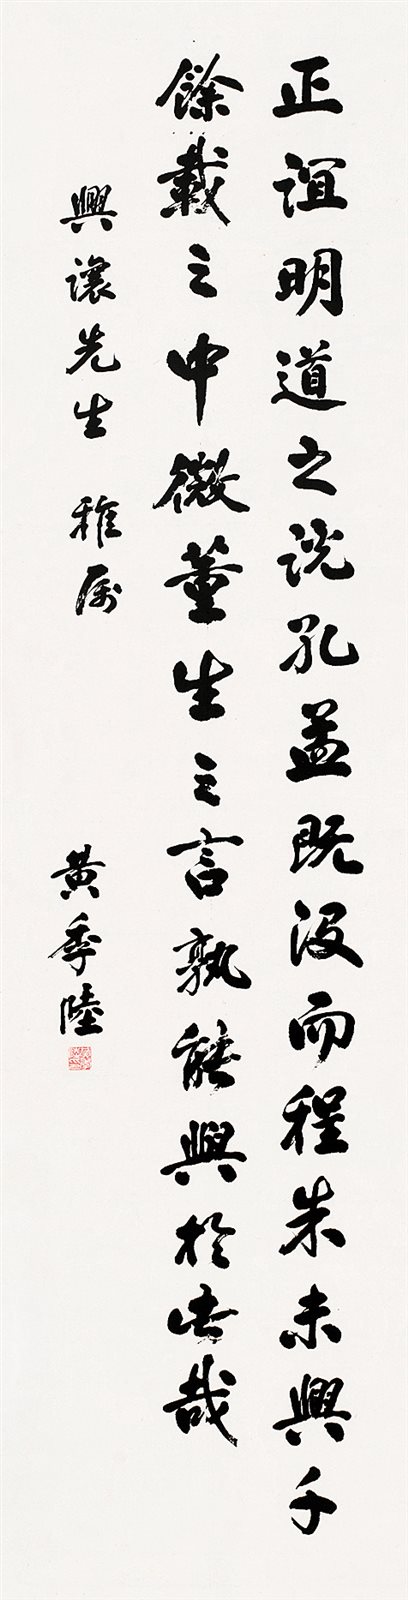 正誼明道之説孔孟既沒而程朱未興千
餘載之中微董生之言孰能與於此哉
興讓先生 雅屬
黃季陸